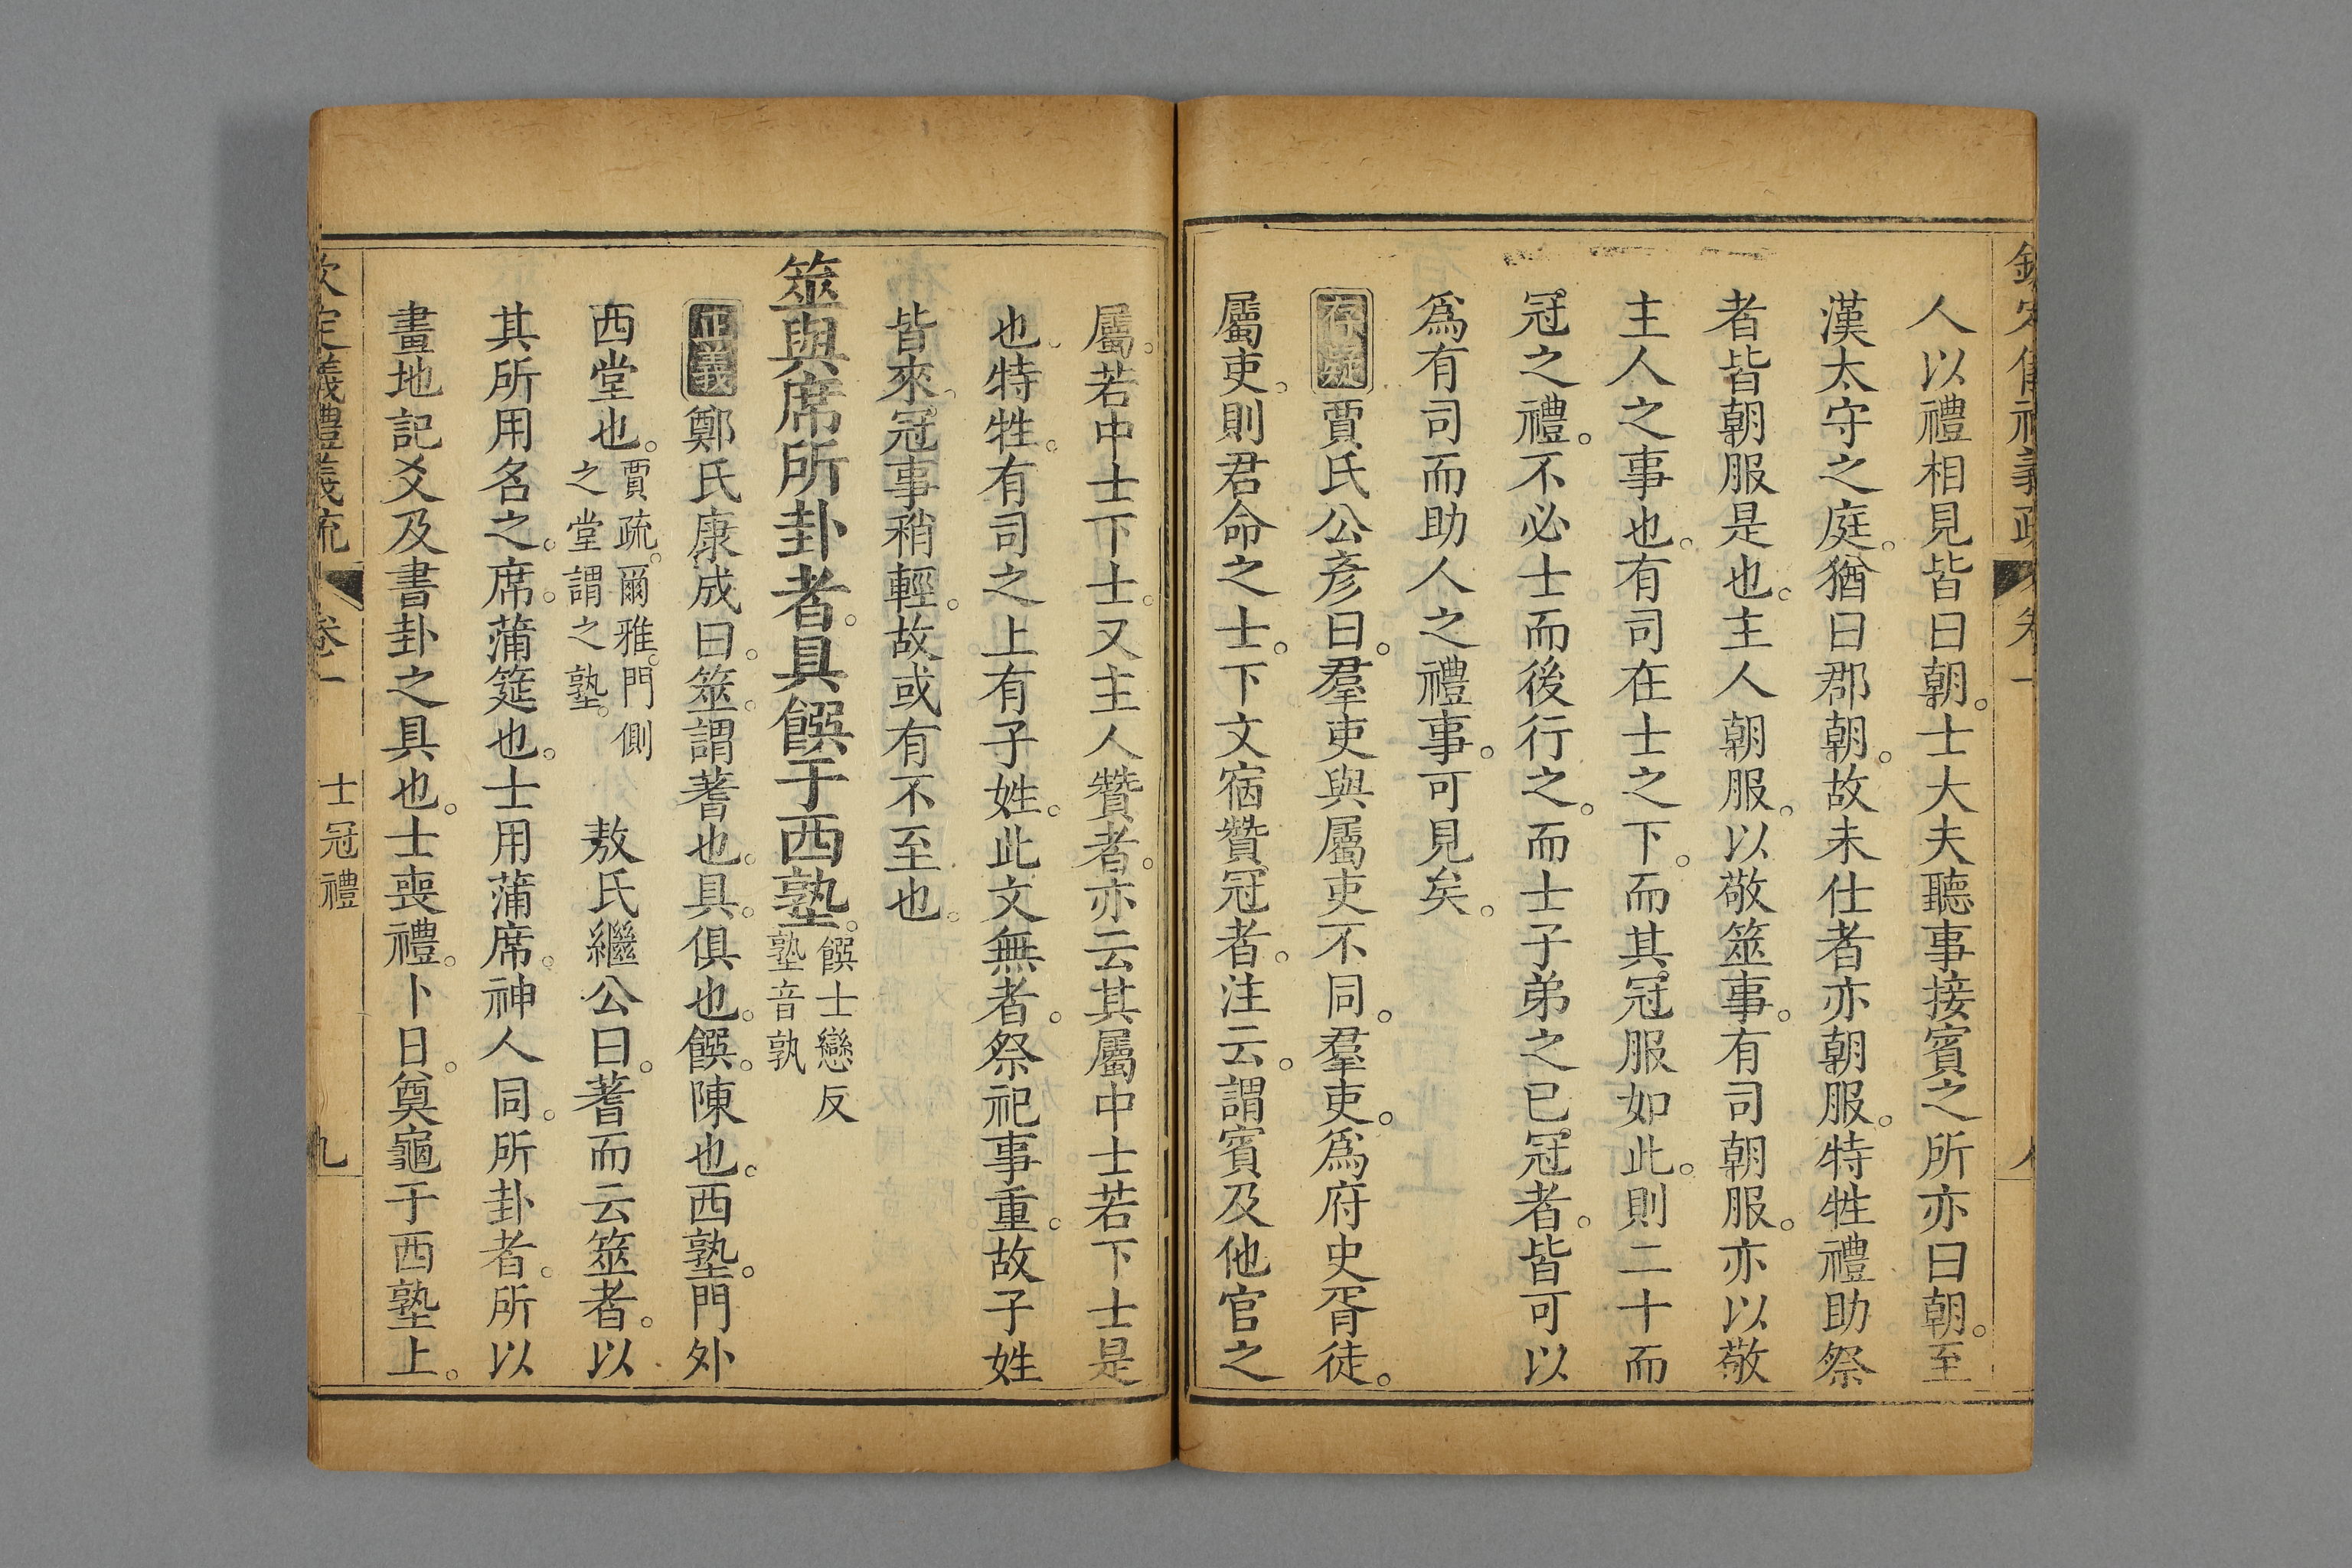 人以禮相見皆曰朝。士大夫聽事接賓之所亦曰朝。至
漢太守之庭。猶曰郡朝。故未仕者亦朝服。特牲禮助祭
者皆朝服是也。主人朝服。以敬筮事。有司朝服。亦以敬
主人之事也。有司在士之下。而其冠服如此。則二十而
冠之禮。不必士而後行之。而士子弟之已冠者。皆可以
爲有司而助人之禮事。可見矣。
存疑賈氏公彥曰。羣吏與屬吏不同。羣吏。爲府史胥徒。
屬吏。則君命之士。下文宿贊冠者。注云。謂賓及他官之
屬。若中士下士。又主人贊者。亦云其屬中士若下士是
也。特牲。有司之上有子姓。此文無者。祭祀事重。故子姓
皆來。冠事稍輕。故或有不至也。
筮與席所卦者。具饌于西塾。饌士戀反
塾音孰
正義鄭氏康成曰。筮。謂蓍也。具。俱也。饌。陳也。西塾。門外
西堂也。賈疏。爾雅。門側
之堂謂之塾。
敖氏繼公曰。蓍而云筮者。以
其所用名之。席。蒲筵也。士用蒲席。神人同。所卦者。所以
畫地記爻及書卦之具也。士喪禮。卜日。奠龜于西塾上。
欽定儀禮義疏 卷一 士冠禮 九